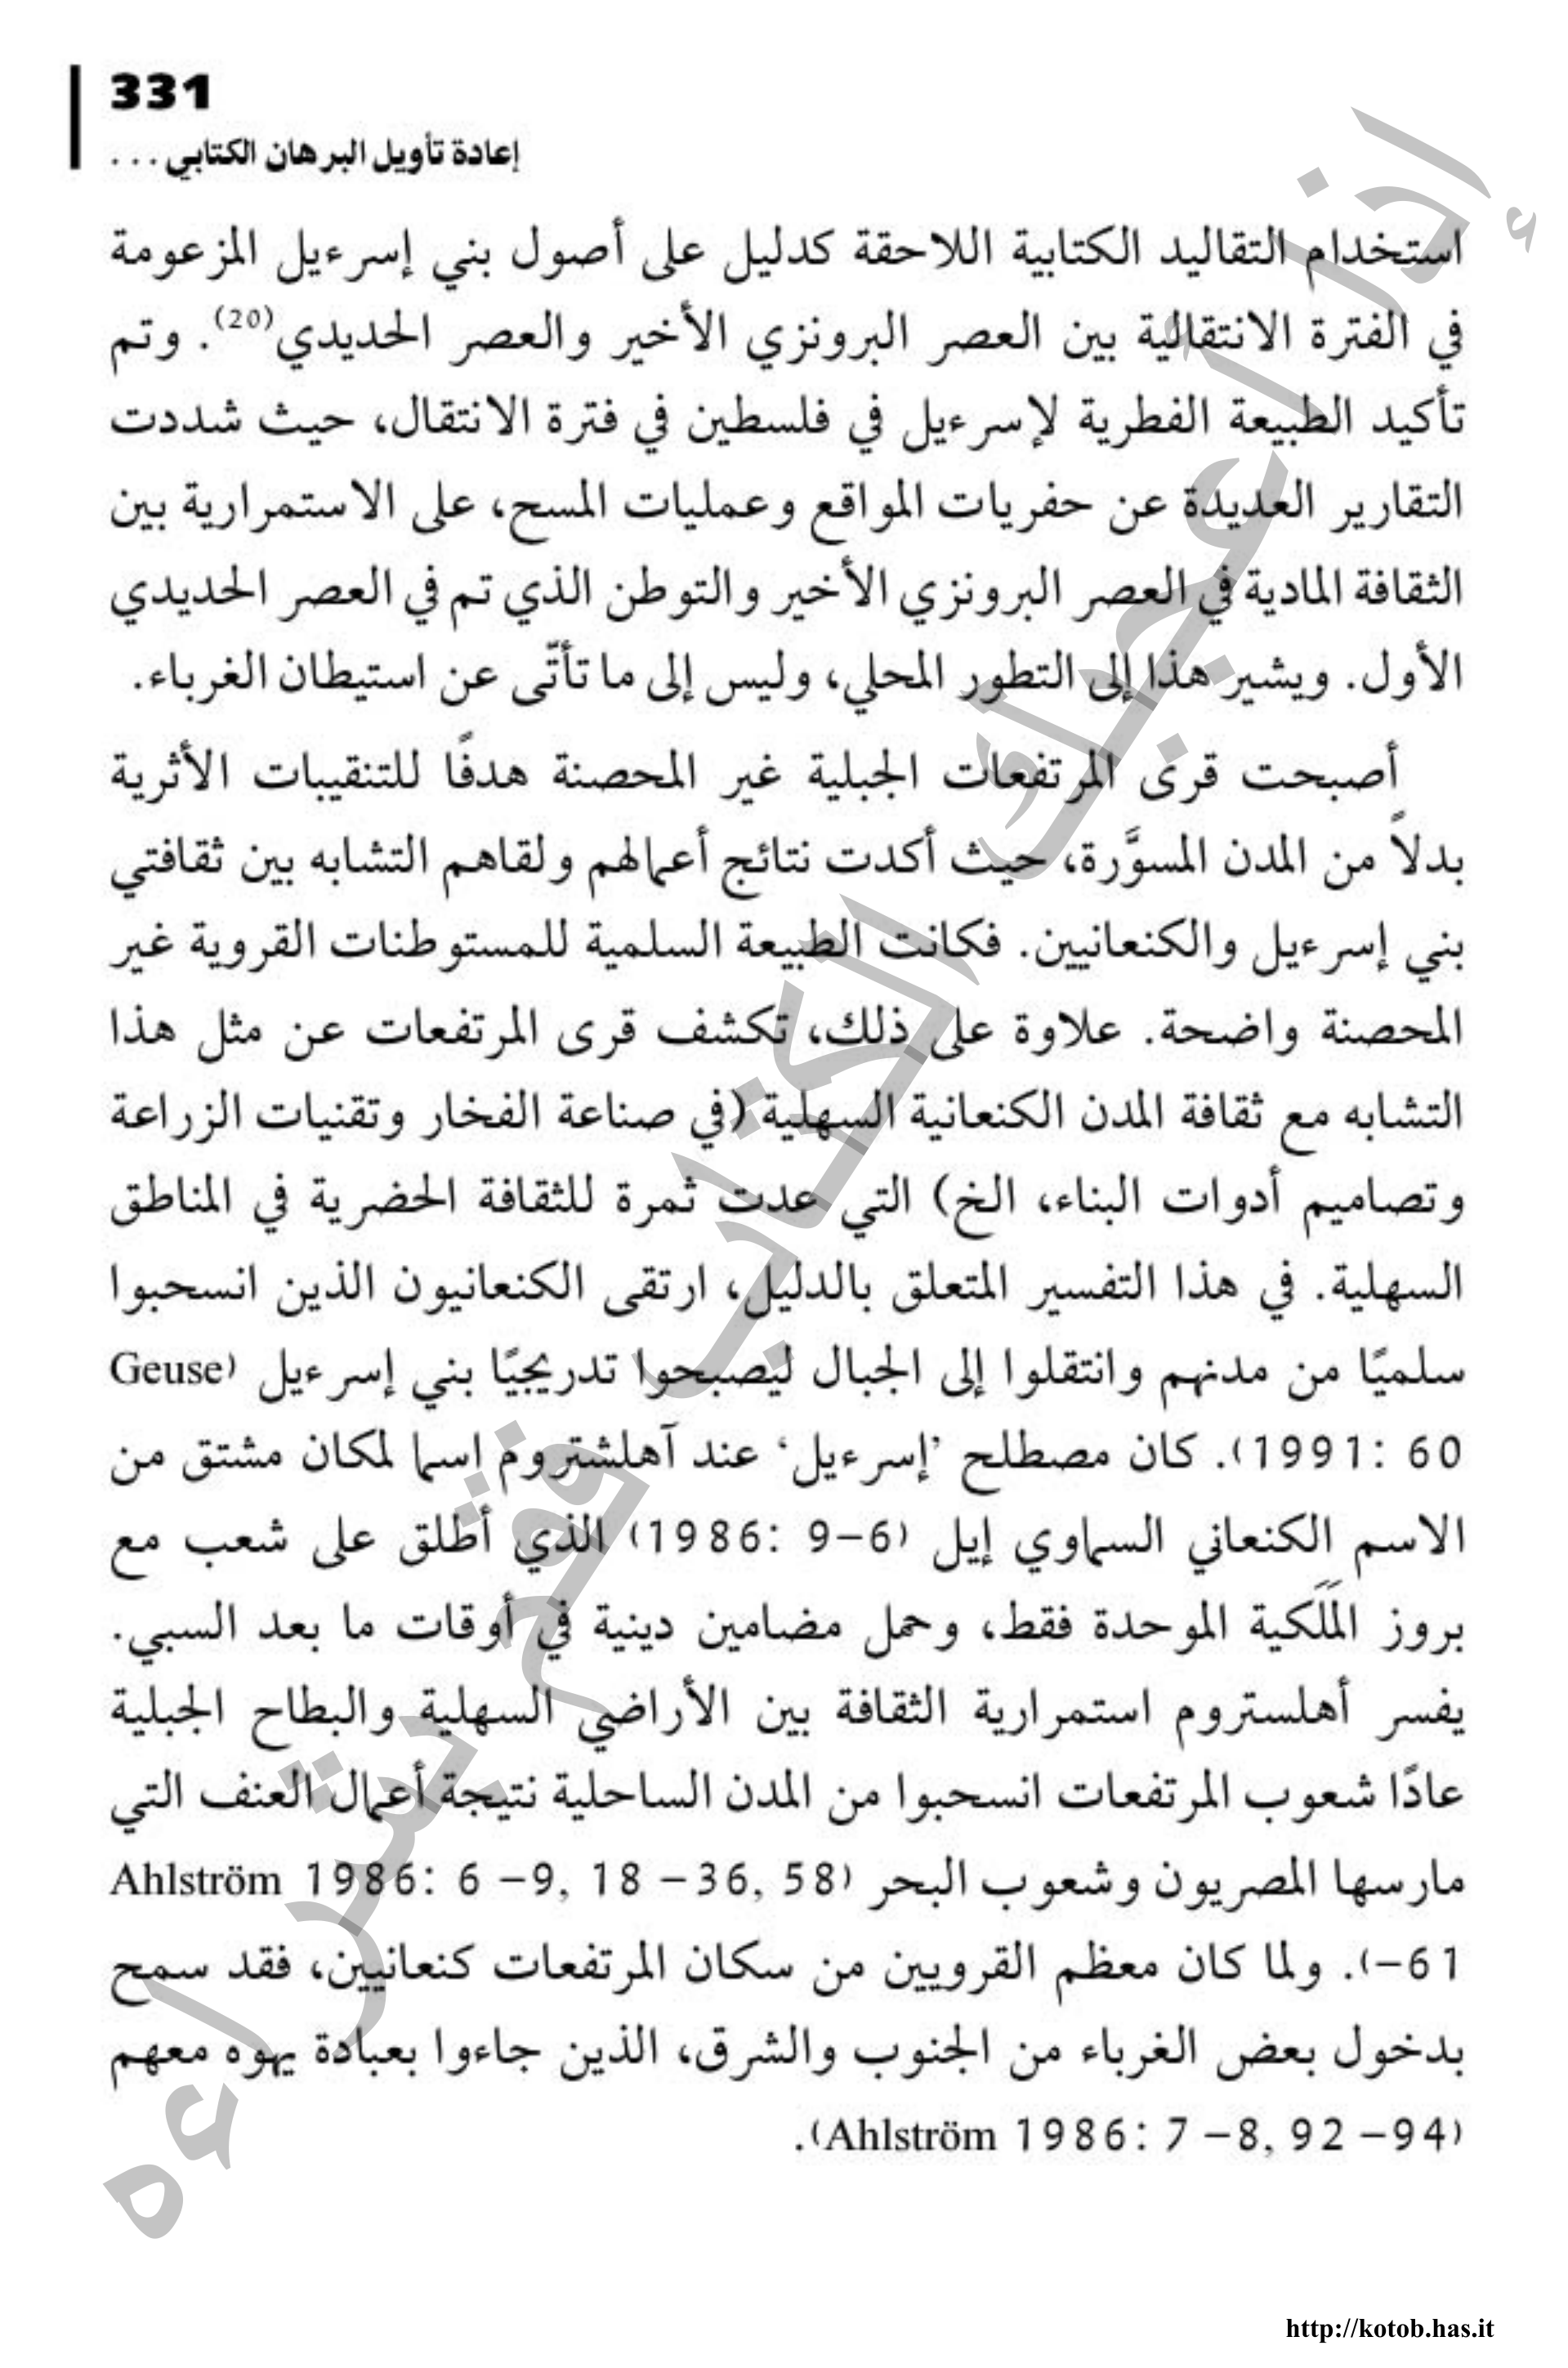 331
إعادة تأويل البرهان الكتابي . . .
استخدام التقاليد الكتابية اللاحقة كدليل على أصول بني إسرءيل المزعومة
في الفترة الانتقالية بين العصر البرونزي الأخير والعصر الحديدي(20). وتم
تأكيد الطبيعة الفطرية لإسرءيل في فلسطين في فترة الانتقال، حيث شددت
التقارير العديدة عن حفريات المواقع وعمليات المسح، على الاستمرارية بين
الثقافة المادية في العصر البرونزي الأخير والتوطن الذي تم في العصر الحديدي
الأول. ويشير هذا إلى التطور المحلي، وليس إلى ما تأتّى عن استيطان الغرباء.
أصبحت قرى المرتفعات الجبلية غير المحصنة هدفًا للتنقيبات الأثرية
بدلاً من المدن المسوَّرة، حيث أكدت نتائج أعمالهم ولقاهم التشابه بين ثقافتي
بني إسرءيل والكنعانيين. فكانت الطبيعة السلمية للمستوطنات القروية غير
المحصنة واضحة. علاوة على ذلك، تكشف قرى المرتفعات عن مثل هذا
التشابه مع ثقافة المدن الكنعانية السهلية (في صناعة الفخار وتقنيات الزراعة
وتصاميم أدوات البناء، الخ) التي عدت ثمرة للثقافة الحضرية في المناطق
السهلية. في هذا التفسير المتعلق بالدليل، ارتقى الكنعانيون الذين انسحبوا
سلميًا من مدنهم وانتقلوا إلى الجبال ليصبحوا تدريجيًا بني إسرءيل (Geuse
1991: 60). كان مصطلح ’إسرءيل‘ عند آهلشتروم اسما لمكان مشتق من
الاسم الكنعاني السماوي إيل (1986: 9–6) الذي أطلق على شعب مع
بروز المَلَكية الموحدة فقط، وحمل مضامين دينية في أوقات ما بعد السبي.
يفسر أهلستروم استمرارية الثقافة بين الأراضي السهلية والبطاح الجبلية
عادًا شعوب المرتفعات انسحبوا من المدن الساحلية نتيجة أعمال العنف التي
مارسها المصريون وشعوب البحر (Ahlström 1986: 6 –9, 18 –36, 58
–61). ولما كان معظم القرويين من سكان المرتفعات كنعانيين، فقد سمح
بدخول بعض الغرباء من الجنوب والشرق، الذين جاءوا بعبادة يهوه معهم
(Ahlström 1986: 7 –8, 92 –94).
إذا أعجبك الكتاب قم بشراءه
http://kotob.has.it